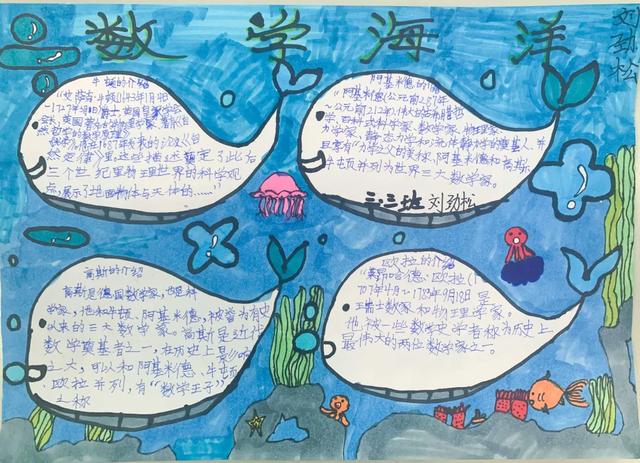 数学海洋
刘劲松
牛顿的介绍
"艾萨克·牛顿(1643年1月4日
~1727年3月31日)爵士,英国皇家学会
会长,英国著名的物理学家,著有《自
然哲学的数学原理》
他在1687年发表的论文《自
然定律》里,这些描述奠定了此后
三个世纪里物理世界的科学观
点,展示了地面物体与天体的……"
阿基米德的介绍
"阿基米德(公元前287年
~公元前212年),伟大的古希腊哲
学、百科式科学家、数学家、物理家、
力学家,静态力学和流体静力学的奠基人,并
且享有"力学之父"的美称,阿基米德和高斯、
牛顿并列为世界三大数学家。
三.三班 刘劲松
高斯的介绍
高斯是德国数学家,也是科
学家,他和牛顿、阿基米德,被誉为有史
以来的三大数学家。高斯是近代
数学奠基者之一,在历史上影响
之大,可以和阿基米德、牛顿、
欧拉并列,有"数学王子"
之称
欧拉的介绍
"莱昂哈德·欧拉(1
707年4月~1783年9月18日)是
瑞士数学家和物理学家。
他被一些数学史学者称为历史上
最伟大的两位数学家之一。